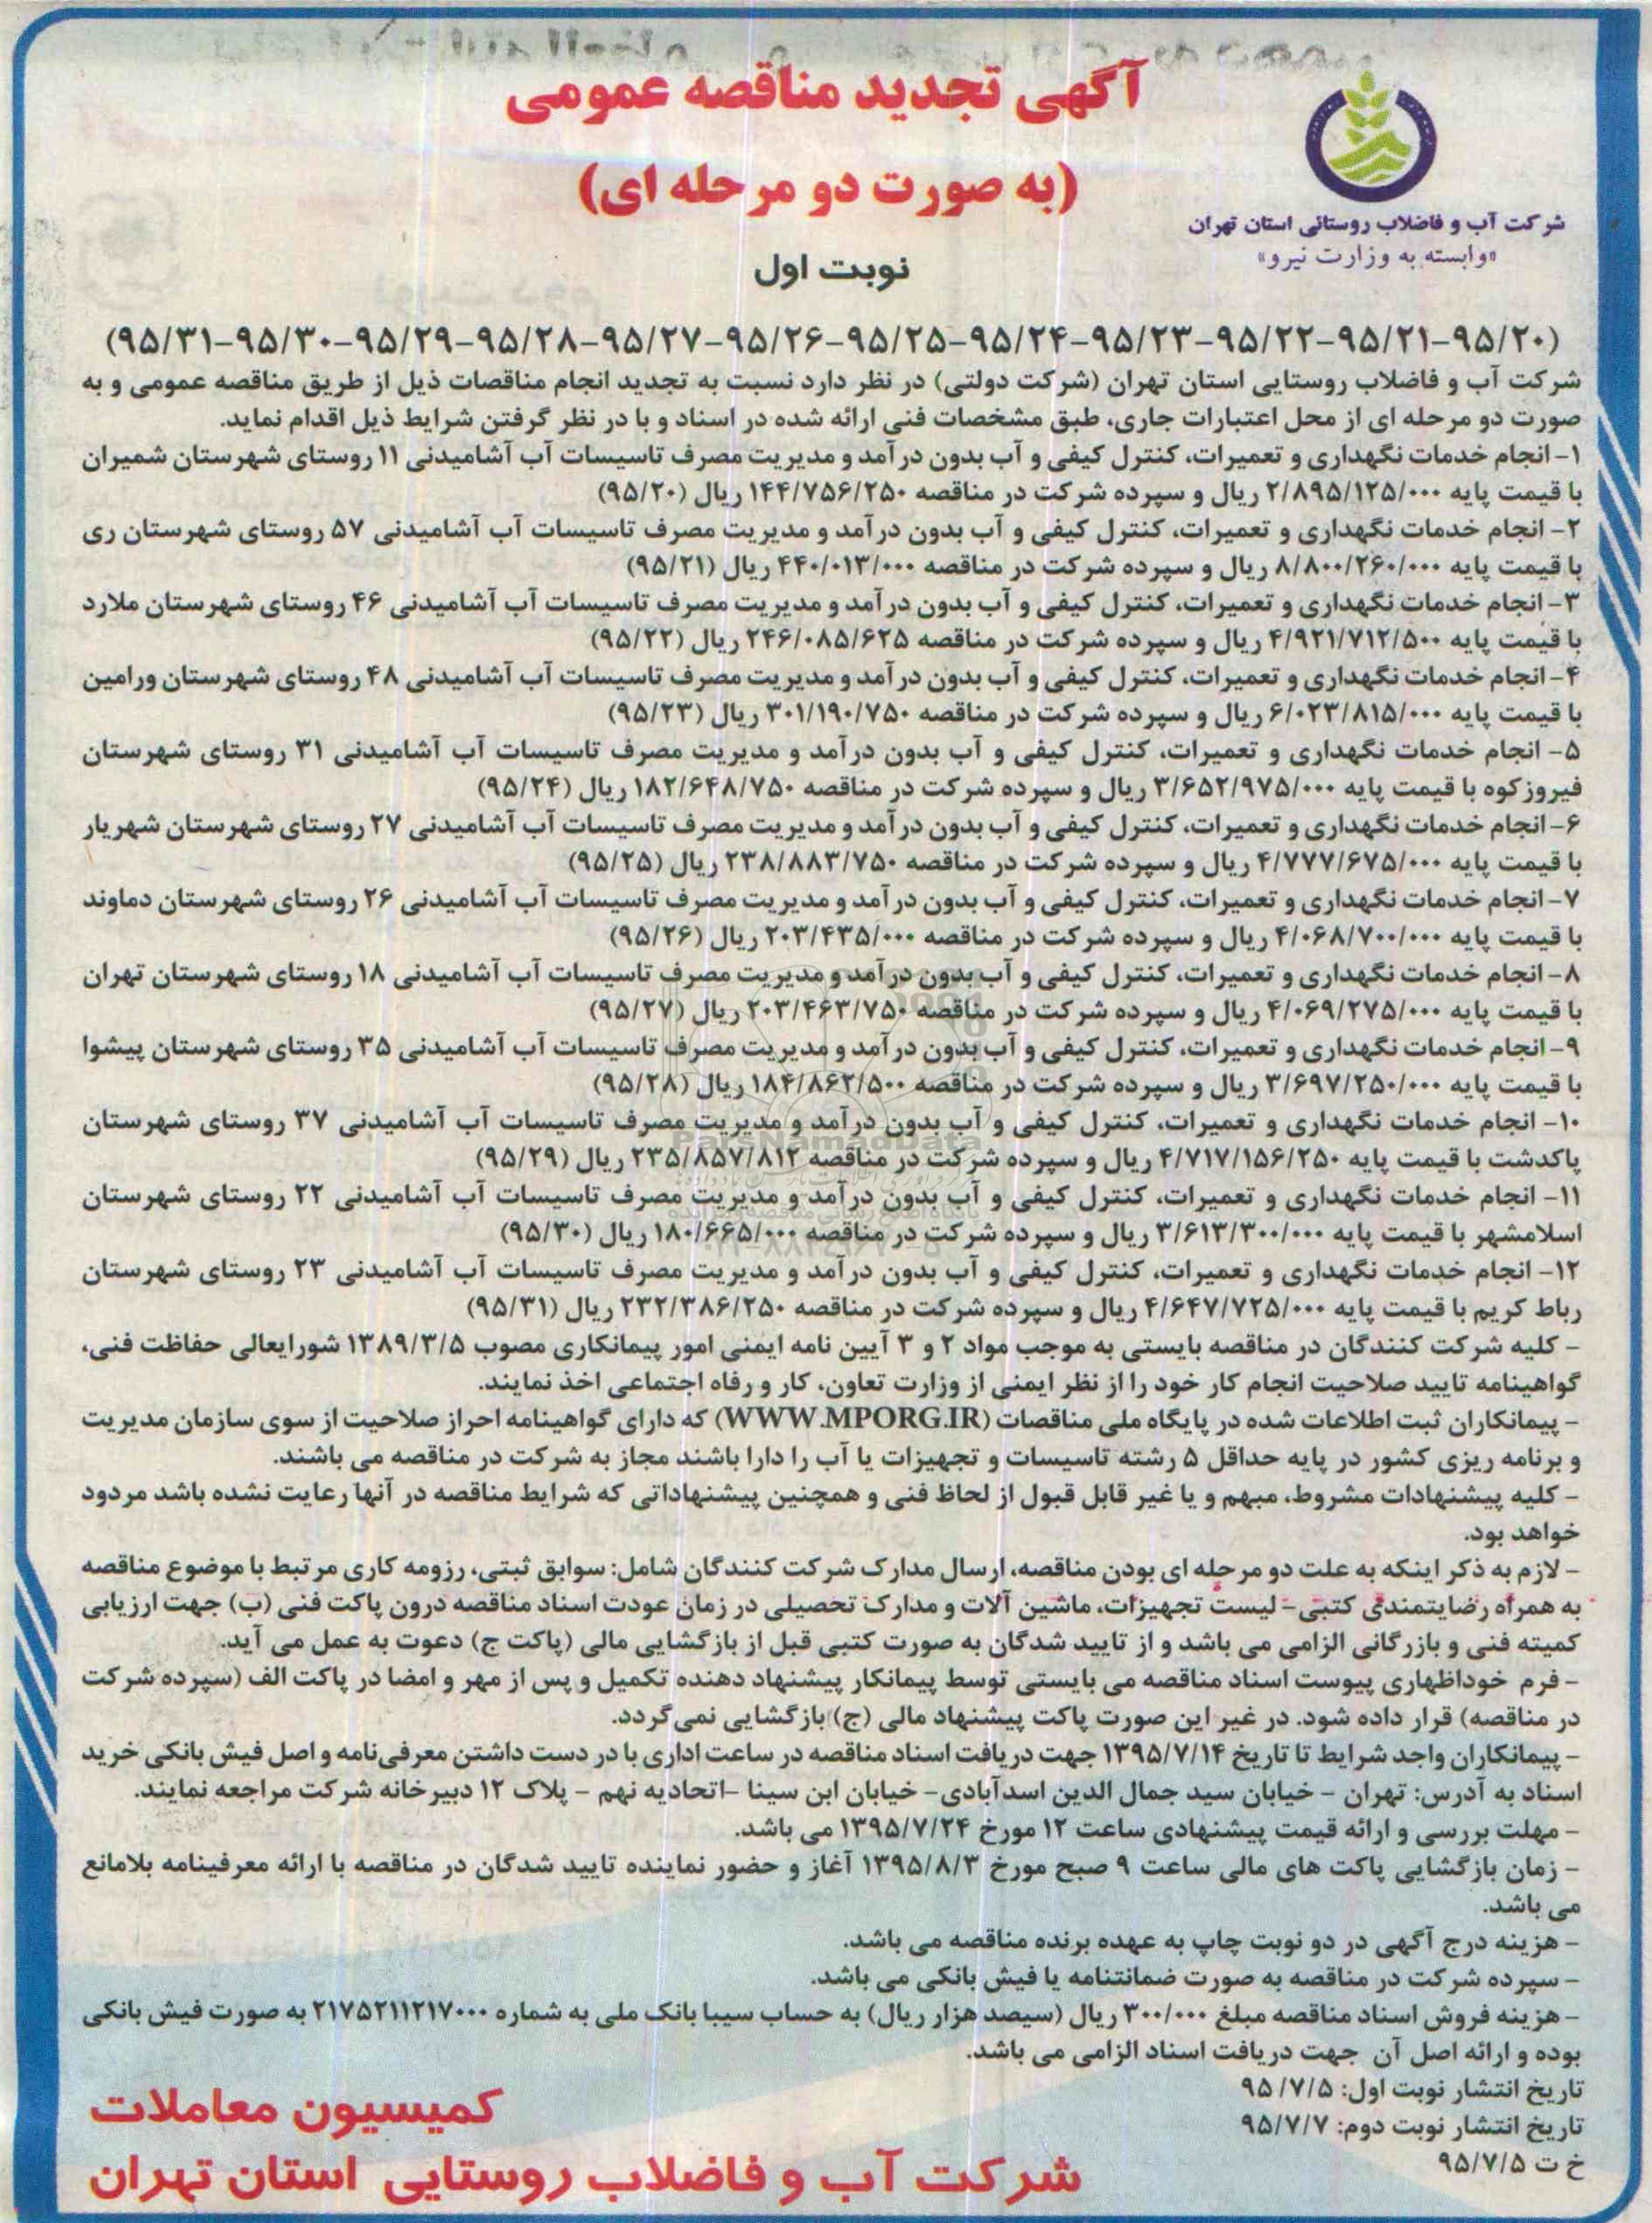 آگهی تجدید مناقصه عمومی
(به صورت دو مرحله ای)
شرکت آب و فاضلاب روستائی استان تهران
«وابسته به وزارت نیرو»
نوبت اول
(۹۵/۲۰-۹۵/۲۱-۹۵/۲۲-۹۵/۲۳-۹۵/۲۴-۹۵/۲۵-۹۵/۲۶-۹۵/۲۷-۹۵/۲۸-۹۵/۲۹-۹۵/۳۰-۹۵/۳۱)
شرکت آب و فاضلاب روستایی استان تهران (شرکت دولتی) در نظر دارد نسبت به تجدید انجام مناقصات ذیل از طریق مناقصه عمومی و به
صورت دو مرحله ای از محل اعتبارات جاری، طبق مشخصات فنی ارائه شده در اسناد و با در نظر گرفتن شرایط ذیل اقدام نماید.
۱- انجام خدمات نگهداری و تعمیرات، کنترل کیفی و آب بدون درآمد و مدیریت مصرف تاسیسات آب آشامیدنی ۱۱ روستای شهرستان شمیران
با قیمت پایه ۲/۸۹۵/۱۲۵/۰۰۰ ریال و سپرده شرکت در مناقصه ۱۴۴/۷۵۶/۲۵۰ ریال (۹۵/۲۰)
۲- انجام خدمات نگهداری و تعمیرات، کنترل کیفی و آب بدون درآمد و مدیریت مصرف تاسیسات آب آشامیدنی ۵۷ روستای شهرستان ری
با قیمت پایه ۸/۸۰۰/۲۶۰/۰۰۰ ریال و سپرده شرکت در مناقصه ۴۴۰/۰۱۳/۰۰۰ ریال (۹۵/۲۱)
۳- انجام خدمات نگهداری و تعمیرات، کنترل کیفی و آب بدون درآمد و مدیریت مصرف تاسیسات آب آشامیدنی ۴۶ روستای شهرستان ملارد
با قیمت پایه ۴/۹۲۱/۷۱۲/۵۰۰ ریال و سپرده شرکت در مناقصه ۲۴۶/۰۸۵/۶۲۵ ریال (۹۵/۲۲)
۴- انجام خدمات نگهداری و تعمیرات، کنترل کیفی و آب بدون درآمد و مدیریت مصرف تاسیسات آب آشامیدنی ۴۸ روستای شهرستان ورامین
با قیمت پایه ۶/۰۲۳/۸۱۵/۰۰۰ ریال و سپرده شرکت در مناقصه ۳۰۱/۱۹۰/۷۵۰ ریال (۹۵/۲۳)
۵- انجام خدمات نگهداری و تعمیرات، کنترل کیفی و آب بدون درآمد و مدیریت مصرف تاسیسات آب آشامیدنی ۳۱ روستای شهرستان
فیروزکوه با قیمت پایه ۳/۶۵۲/۹۷۵/۰۰۰ ریال و سپرده شرکت در مناقصه ۱۸۲/۶۴۸/۷۵۰ ریال (۹۵/۲۴)
۶- انجام خدمات نگهداری و تعمیرات، کنترل کیفی و آب بدون درآمد و مدیریت مصرف تاسیسات آب آشامیدنی ۲۷ روستای شهرستان شهریار
با قیمت پایه ۴/۷۷۷/۶۷۵/۰۰۰ ریال و سپرده شرکت در مناقصه ۲۳۸/۸۸۳/۷۵۰ ریال (۹۵/۲۵)
۷- انجام خدمات نگهداری و تعمیرات، کنترل کیفی و آب بدون درآمد و مدیریت مصرف تاسیسات آب آشامیدنی ۲۶ روستای شهرستان دماوند
با قیمت پایه ۴/۰۶۸/۷۰۰/۰۰۰ ریال و سپرده شرکت در مناقصه ۲۰۳/۴۳۵/۰۰۰ ریال (۹۵/۲۶)
۸- انجام خدمات نگهداری و تعمیرات، کنترل کیفی و آب بدون درآمد و مدیریت مصرف تاسیسات آب آشامیدنی ۱۸ روستای شهرستان تهران
با قیمت پایه ۴/۰۶۹/۲۷۵/۰۰۰ ریال و سپرده شرکت در مناقصه ۲۰۳/۴۶۳/۷۵۰ ریال (۹۵/۲۷)
۹- انجام خدمات نگهداری و تعمیرات، کنترل کیفی و آب بدون درآمد و مدیریت مصرف تاسیسات آب آشامیدنی ۳۵ روستای شهرستان پیشوا
با قیمت پایه ۳/۶۹۷/۲۵۰/۰۰۰ ریال و سپرده شرکت در مناقصه ۱۸۴/۸۶۲/۵۰۰ ریال (۹۵/۲۸)
۱۰- انجام خدمات نگهداری و تعمیرات، کنترل کیفی و آب بدون درآمد و مدیریت مصرف تاسیسات آب آشامیدنی ۳۷ روستای شهرستان
ParsNamadData
پاکدشت با قیمت پایه ۴/۷۱۷/۱۵۶/۲۵۰ ریال و سپرده شرکت در مناقصه ۲۳۵/۸۵۷/۸۱۲ ریال (۹۵/۲۹)
۱۱- انجام خدمات نگهداری و تعمیرات، کنترل کیفی و آب بدون درآمد و مدیریت مصرف تاسیسات آب آشامیدنی ۲۲ روستای شهرستان
اسلامشهر با قیمت پایه ۳/۶۱۳/۳۰۰/۰۰۰ ریال و سپرده شرکت در مناقصه ۱۸۰/۶۶۵/۰۰۰ ریال (۹۵/۳۰)
۱۲- انجام خدمات نگهداری و تعمیرات، کنترل کیفی و آب بدون درآمد و مدیریت مصرف تاسیسات آب آشامیدنی ۲۳ روستای شهرستان
رباط کریم با قیمت پایه ۴/۶۴۷/۷۲۵/۰۰۰ ریال و سپرده شرکت در مناقصه ۲۳۲/۳۸۶/۲۵۰ ریال (۹۵/۳۱)
- کلیه شرکت کنندگان در مناقصه بایستی به موجب مواد ۲ و ۳ آیین نامه ایمنی امور پیمانکاری مصوب ۱۳۸۹/۳/۵ شورایعالی حفاظت فنی،
گواهینامه تایید صلاحیت انجام کار خود را از نظر ایمنی از وزارت تعاون، کار و رفاه اجتماعی اخذ نمایند.
- پیمانکاران ثبت اطلاعات شده در پایگاه ملی مناقصات (WWW.MPORG.IR) که دارای گواهینامه احراز صلاحیت از سوی سازمان مدیریت
و برنامه ریزی کشور در پایه حداقل ۵ رشته تاسیسات و تجهیزات یا آب را دارا باشند مجاز به شرکت در مناقصه می باشند.
- کلیه پیشنهادات مشروط، مبهم و یا غیر قابل قبول از لحاظ فنی و همچنین پیشنهاداتی که شرایط مناقصه در آنها رعایت نشده باشد مردود
خواهد بود.
- لازم به ذکر اینکه به علت دو مرحله ای بودن مناقصه، ارسال مدارک شرکت کنندگان شامل: سوابق ثبتی، رزومه کاری مرتبط با موضوع مناقصه
به همراه رضایتمندی کتبی- لیست تجهیزات، ماشین آلات و مدارک تحصیلی در زمان عودت اسناد مناقصه درون پاکت فنی (ب) جهت ارزیابی
کمیته فنی و بازرگانی الزامی می باشد و از تایید شدگان به صورت کتبی قبل از بازگشایی مالی (پاکت ج) دعوت به عمل می آید.
- فرم خوداظهاری پیوست اسناد مناقصه می بایستی توسط پیمانکار پیشنهاد دهنده تکمیل و پس از مهر و امضا در پاکت الف (سپرده شرکت
در مناقصه) قرار داده شود. در غیر این صورت پاکت پیشنهاد مالی (ج) بازگشایی نمی گردد.
- پیمانکاران واجد شرایط تا تاریخ ۱۳۹۵/۷/۱۴ جهت دریافت اسناد مناقصه در ساعت اداری با در دست داشتن معرفی‌نامه و اصل فیش بانکی خرید
اسناد به آدرس: تهران - خیابان سید جمال الدین اسدآبادی- خیابان ابن سینا -اتحادیه نهم - پلاک ۱۲ دبیرخانه شرکت مراجعه نمایند.
- مهلت بررسی و ارائه قیمت پیشنهادی ساعت ۱۲ مورخ ۱۳۹۵/۷/۲۴ می باشد.
- زمان بازگشایی پاکت های مالی ساعت ۹ صبح مورخ ۱۳۹۵/۸/۳ آغاز و حضور نماینده تایید شدگان در مناقصه با ارائه معرفینامه بلامانع
می باشد.
- هزینه درج آگهی در دو نوبت چاپ به عهده برنده مناقصه می باشد.
- سپرده شرکت در مناقصه به صورت ضمانتنامه یا فیش بانکی می باشد.
- هزینه فروش اسناد مناقصه مبلغ ۳۰۰/۰۰۰ ریال (سیصد هزار ریال) به حساب سیبا بانک ملی به شماره ۲۱۷۵۲۱۱۲۱۷۰۰۰ به صورت فیش بانکی
بوده و ارائه اصل آن جهت دریافت اسناد الزامی می باشد.
تاریخ انتشار نوبت اول: ۹۵/۷/۵
تاریخ انتشار نوبت دوم: ۹۵/۷/۷
خ ت ۹۵/۷/۵
کمیسیون معاملات
شرکت آب و فاضلاب روستایی استان تهران